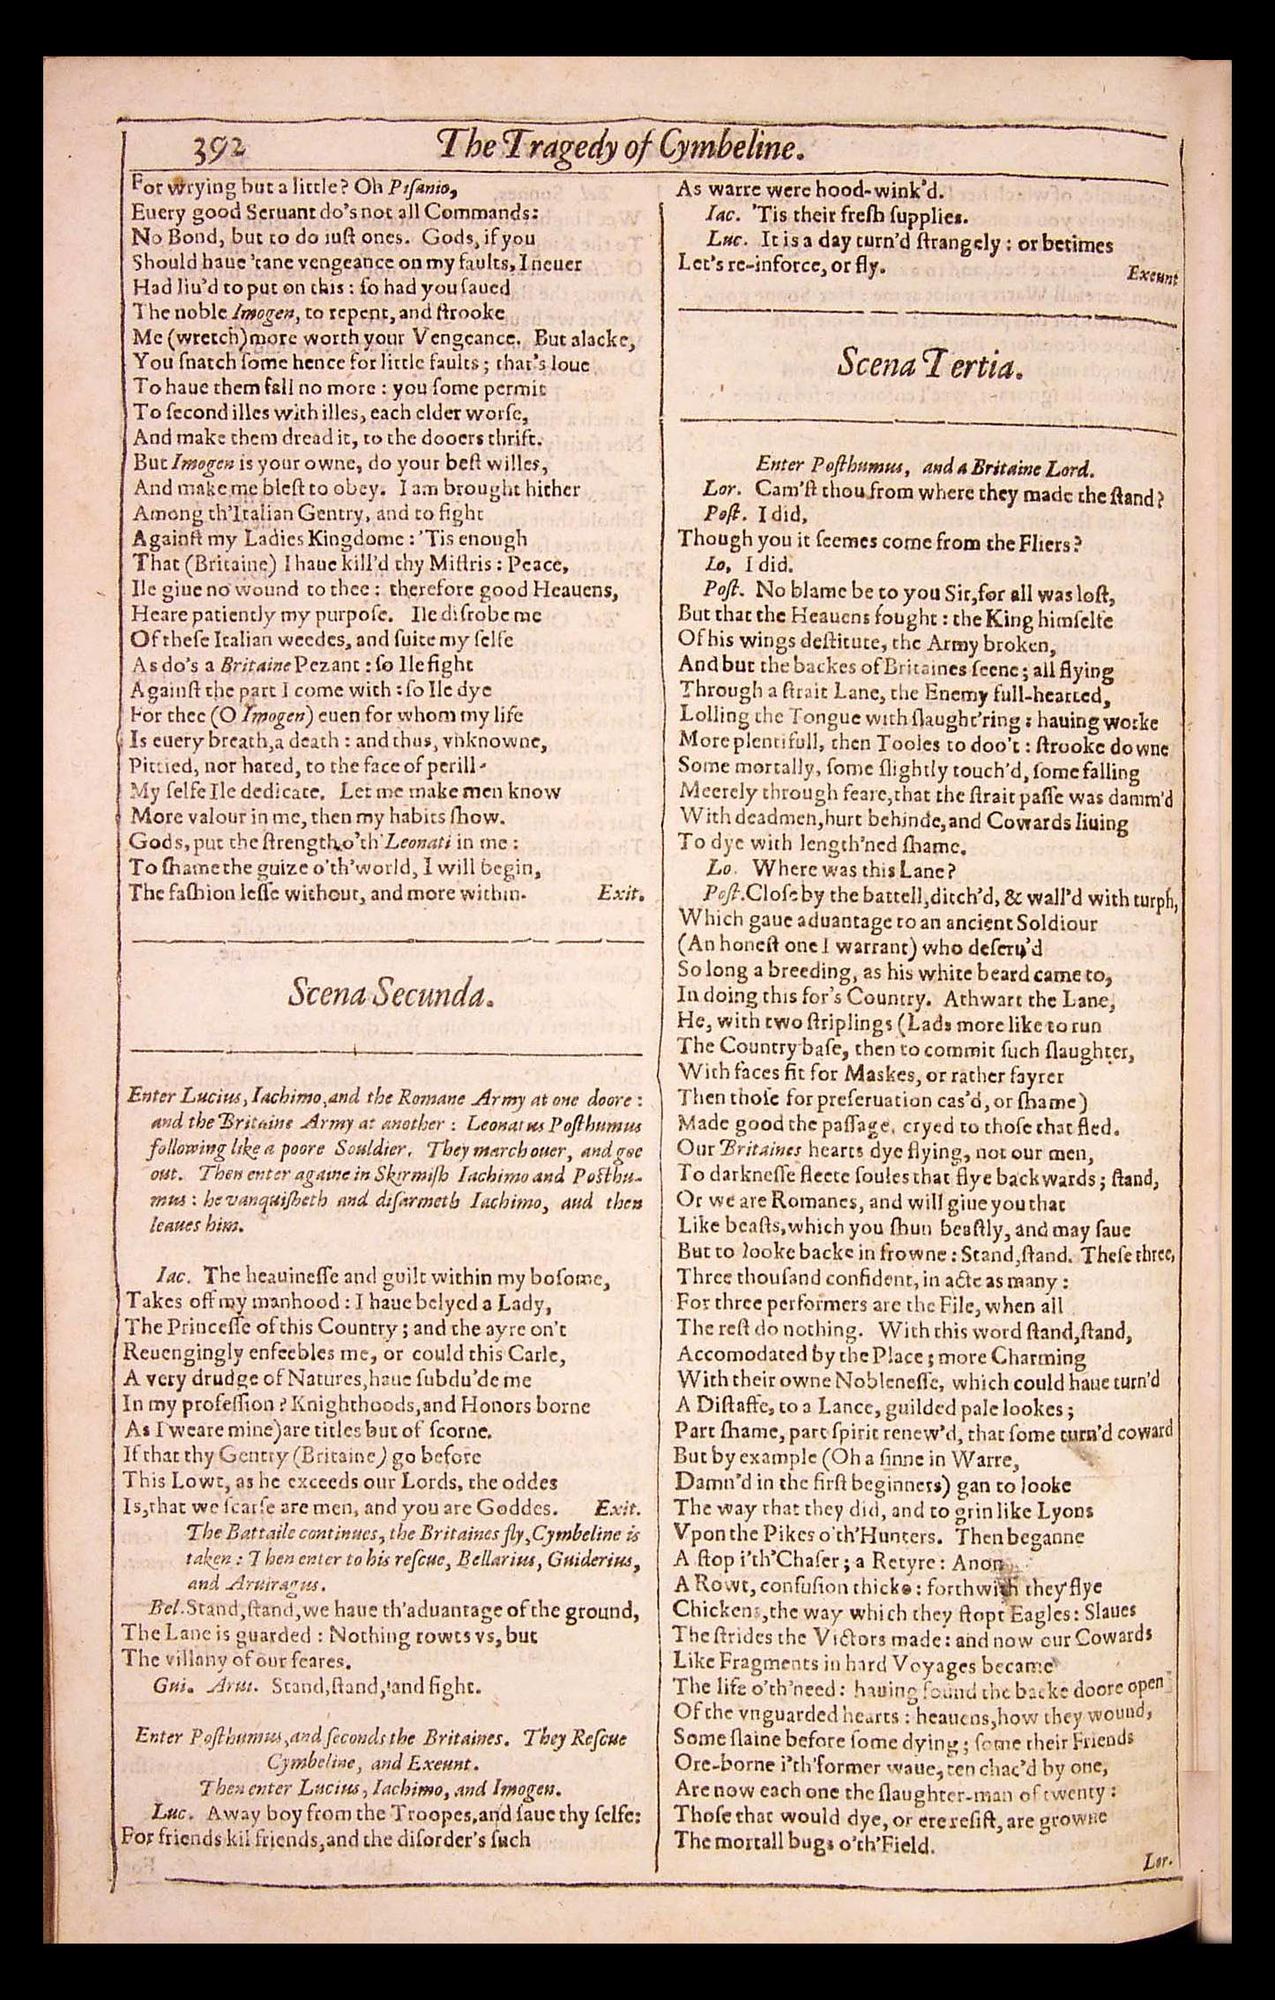 392
The Tragedy of Cymbeline.
For wrying but a little? Oh Piſanio,
Euery good Seruant do's not all Commands:
No Bond, but to do iuſt ones. Gods, if you
Should haue 'tane vengeance on my faults, I neuer
Had liu'd to put on this: ſo had you ſaued
The noble Imogen, to repent, and ſtrooke
Me (wretch) more worth your Vengeance. But alacke,
You ſnatch ſome hence for little faults; that's loue
To haue them fall no more: you ſome permit
To ſecond illes with illes, each elder worſe,
And make them dread it, to the dooers thrift.
But Imogen is your owne, do your beſt willes,
And make me bleſt to obey. I am brought hither
Among th'Italian Gentry, and to fight
Againſt my Ladies Kingdome: 'Tis enough
That (Britaine) I haue kill'd thy Miſtris: Peace,
Ile giue no wound to thee: therefore good Heauens,
Heare patiently my purpoſe. Ile diſrobe me
Of theſe Italian weedes, and ſuite my ſelfe
As do's a Britaine Pezant: ſo Ile fight
Againſt the part I come with: ſo Ile dye
For thee (O Imogen) euen for whom my life
Is euery breath, a death: and thus, vnknowne,
Pittied, nor hated, to the face of perill
My ſelfe Ile dedicate. Let me make men know
More valour in me, then my habits ſhow.
Gods, put the ſtrength o'th'Leonati in me:
To ſhame the guize o'th'world, I will begin,
The faſhion leſſe without, and more within. Exit.
Scena Secunda.
Enter Lucius, Iachimo, and the Romane Army at one doore:
and the Britaine Army at another: Leonatus Poſthumus
following like a poore Souldier. They march ouer, and goe
out. Then enter againe in Skirmiſh Iachimo and Poſthu-
mus: he vanquiſheth and diſarmeth Iachimo, and then
leaues him.
Iac. The heauineſſe and guilt within my boſome,
Takes off my manhood: I haue belyed a Lady,
The Princeſſe of this Country; and the ayre on't
Reuengingly enfeebles me, or could this Carle,
A very drudge of Natures, haue ſubdu'de me
In my profeſſion? Knighthoods, and Honors borne
As I weare mine) are titles but of ſcorne.
If that thy Gentry (Britaine) go before
This Lowt, as he exceeds our Lords, the oddes
Is, that we ſcarſe are men, and you are Goddes. Exit.
The Battaile continues, the Britaines fly, Cymbeline is
taken: Then enter to his reſcue, Bellarius, Guiderius,
and Aruiragus.
Bel. Stand, ſtand, we haue th'aduantage of the ground,
The Lane is guarded: Nothing rowts vs, but
The villany of our feares.
Gui. Arui. Stand, ſtand, and fight.
Enter Poſthumus, and ſeconds the Britaines. They Reſcue
Cymbeline, and Exeunt.
Then enter Lucius, Iachimo, and Imogen.
Luc. Away boy from the Troopes, and ſaue thy ſelfe:
For friends kil friends, and the diſorder's ſuch
As warre were hood-wink'd.
Iac. 'Tis their freſh ſupplies.
Luc. It is a day turn'd ſtrangely: or betimes
Let's re-inforce, or fly. Exeunt
Scena Tertia.
Enter Poſthumus, and a Britaine Lord.
Lor. Cam'ſt thou from where they made the ſtand?
Poſt. I did,
Though you it ſeemes come from the Fliers?
Lo, I did.
Poſt. No blame be to you Sir, for all was loſt,
But that the Heauens fought: the King himſelfe
Of his wings deſtitute, the Army broken,
And but the backes of Britaines ſeene; all flying
Through a ſtrait Lane, the Enemy full-hearted,
Lolling the Tongue with ſlaught'ring: hauing worke
More plentifull, then Tooles to doo't: ſtrooke downe
Some mortally, ſome ſlightly touch'd, ſome falling
Meerely through feare, that the ſtrait paſſe was damm'd
With deadmen, hurt behinde, and Cowards liuing
To dye with length'ned ſhame.
Lo. Where was this Lane?
Poſt. Cloſe by the battell, ditch'd, & wall'd with turph,
Which gaue aduantage to an ancient Soldiour
(An honeſt one I warrant) who deſeru'd
So long a breeding, as his white beard came to,
In doing this for's Country. Athwart the Lane,
He, with two ſtriplings (Lads more like to run
The Country baſe, then to commit ſuch ſlaughter,
With faces fit for Maskes, or rather fayrer
Then thoſe for preſeruation cas'd, or ſhame)
Made good the paſſage, cryed to thoſe that fled.
Our Britaines hearts dye flying, not our men,
To darkneſſe fleete ſoules that flye backwards; ſtand,
Or we are Romanes, and will giue you that
Like beaſts, which you ſhun beaſtly, and may ſaue
But to looke backe in frowne: Stand, ſtand. Theſe three,
Three thouſand confident, in acte as many:
For three performers are the File, when all
The reſt do nothing. With this word ſtand, ſtand,
Accomodated by the Place; more Charming
With their owne Nobleneſſe, which could haue turn'd
A Diſtaffe, to a Lance, guilded pale lookes;
Part ſhame, part ſpirit renew'd, that ſome turn'd coward
But by example (Oh a ſinne in Warre,
Damn'd in the firſt beginners) gan to looke
The way that they did, and to grin like Lyons
Vpon the Pikes o'th'Hunters. Then beganne
A ſtop i'th'Chaſer; a Retyre: Anon
A Rowt, confuſion thicke: forthwith they flye
Chickens, the way which they ſtopt Eagles: Slaues
The ſtrides the Victors made: and now our Cowards
Like Fragments in hard Voyages became
The life o'th'need: hauing found the backe doore open
Of the vnguarded hearts: heauens, how they wound,
Some ſlaine before ſome dying; ſome their Friends
Ore-borne i'th'former waue, ten chac'd by one,
Are now each one the ſlaughter-man of twenty:
Thoſe that would dye, or ere reſiſt, are growne
The mortall bugs o'th'Field.
Lor.